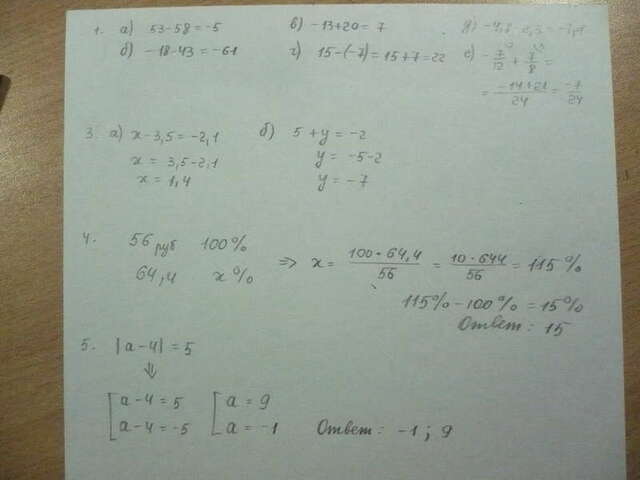 1. а) 53-58=-5 в) -13+20=7 д)
б) -18-43=-61 г) 15-(-7)=15+7=22 е) -7/12 + 7/8 =
= (-14+21)/24 = -7/24
3. а) x-3,5=-2,1 б) 5+y=-2
x = 3,5-2,1 y = -5-2
x = 1,4 y = -7
4. 56 руб 100% => x = (100·64,4)/56 = (10·644)/56 = 115%
64,4 x%
115%-100%=15%
Ответ: 15
5. |a-4|=5
⇓
[a-4=5 [a=9
[a-4=-5 [a=-1 Ответ: -1; 9